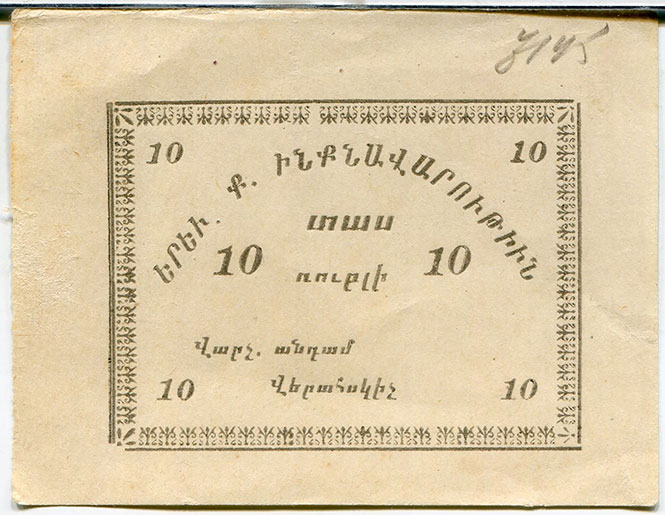 10 10
ԵՐԵՒ. Ք. ԻՆՔՆԱՎԱՐՈՒԹԻԻՆ
տաս
10 10
ռուբլի
Վարչ. անդամ
Վերահսկիչ
10 10